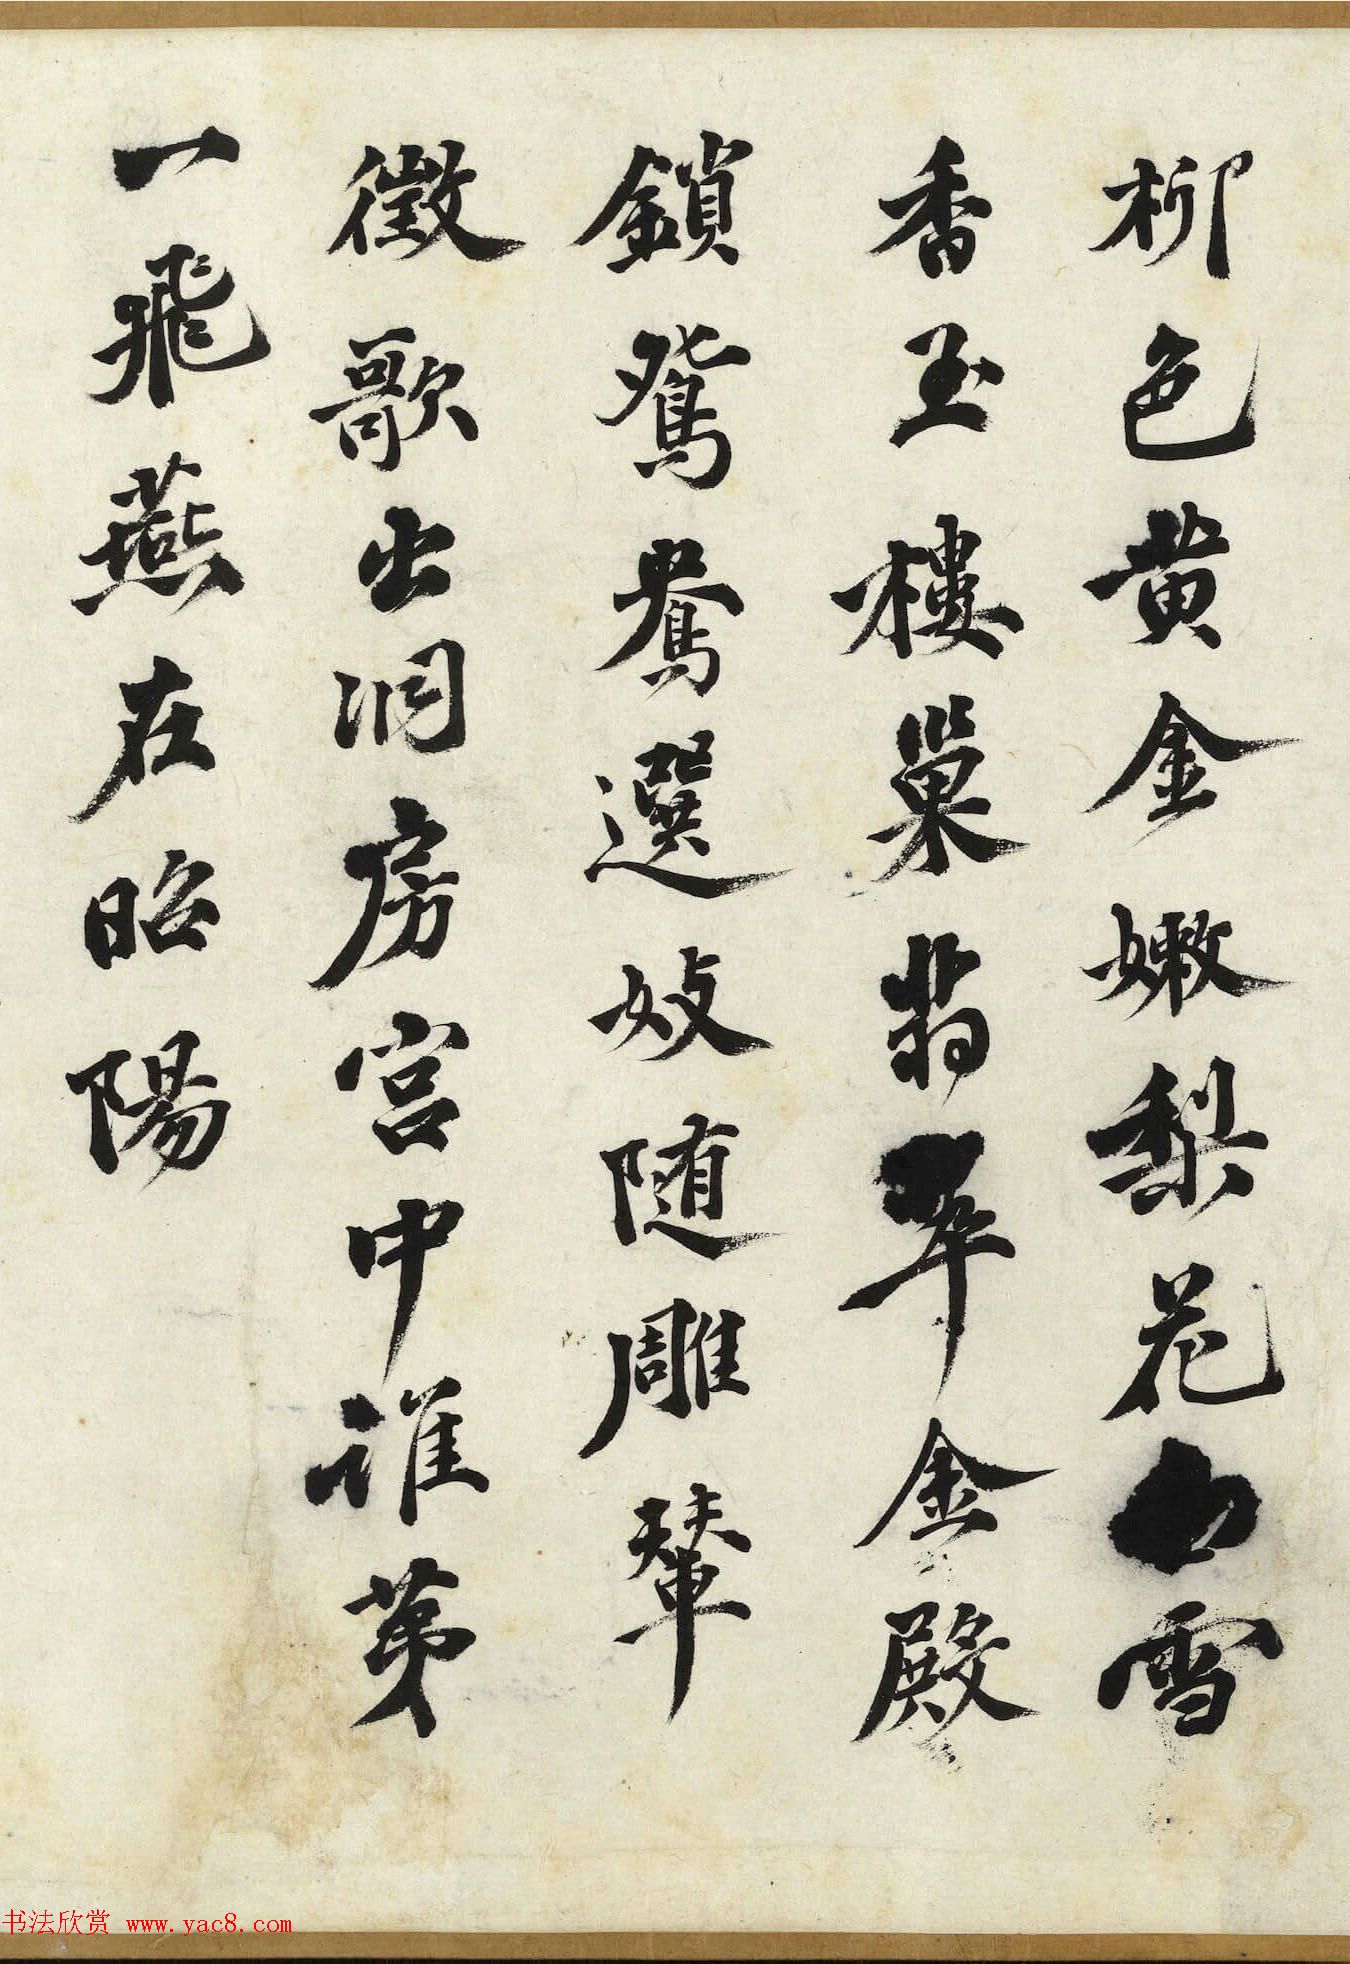 柳色黄金嫩梨花白雪
香玉樓巢翡翠金殿
鎖鴛鴦選妓随雕輦
徵歌出洞房宮中誰苐
一飛燕在昭陽
书法欣赏 www.yac8.com